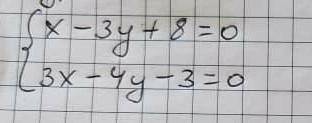 x - 3y + 8 = 0
3x - 4y - 3 = 0